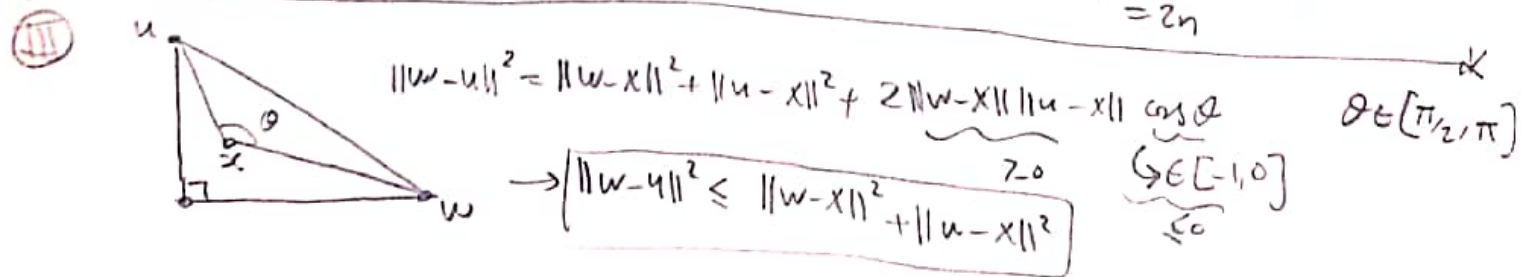 = 2n
III
u
||w-u||² = ||w-x||² + ||u-x||² + 2||w-x|| ||u-x|| cos θ
θ ∈ [π/2, π]
θ
x
≥0
↳ ∈ [-1,0]
≤0
→ ||w-u||² ≤ ||w-x||² + ||u-x||²
w